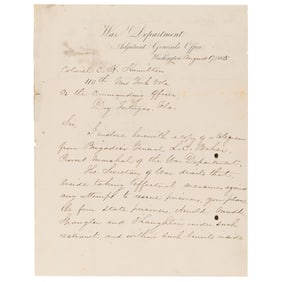 War Department
Adjutant General's Office
Washington August 17, 1865
Colonel C. H. Hamilton
110th New York Vols
Or the Commanding Officer
Dry Tortugas, Fla.
Sir,
I enclose herewith a copy of a telegram
from Brigadier General L.C. Baker,
Provost Marshal of the War Department.
The Secretary of War directs that,
beside taking effectual measures against
any attempt to rescue prisoners, you place
the four state prisoners, Arnold, Mudd,
Spangler and O'Laughlin under such
restraint, and within such limits inside